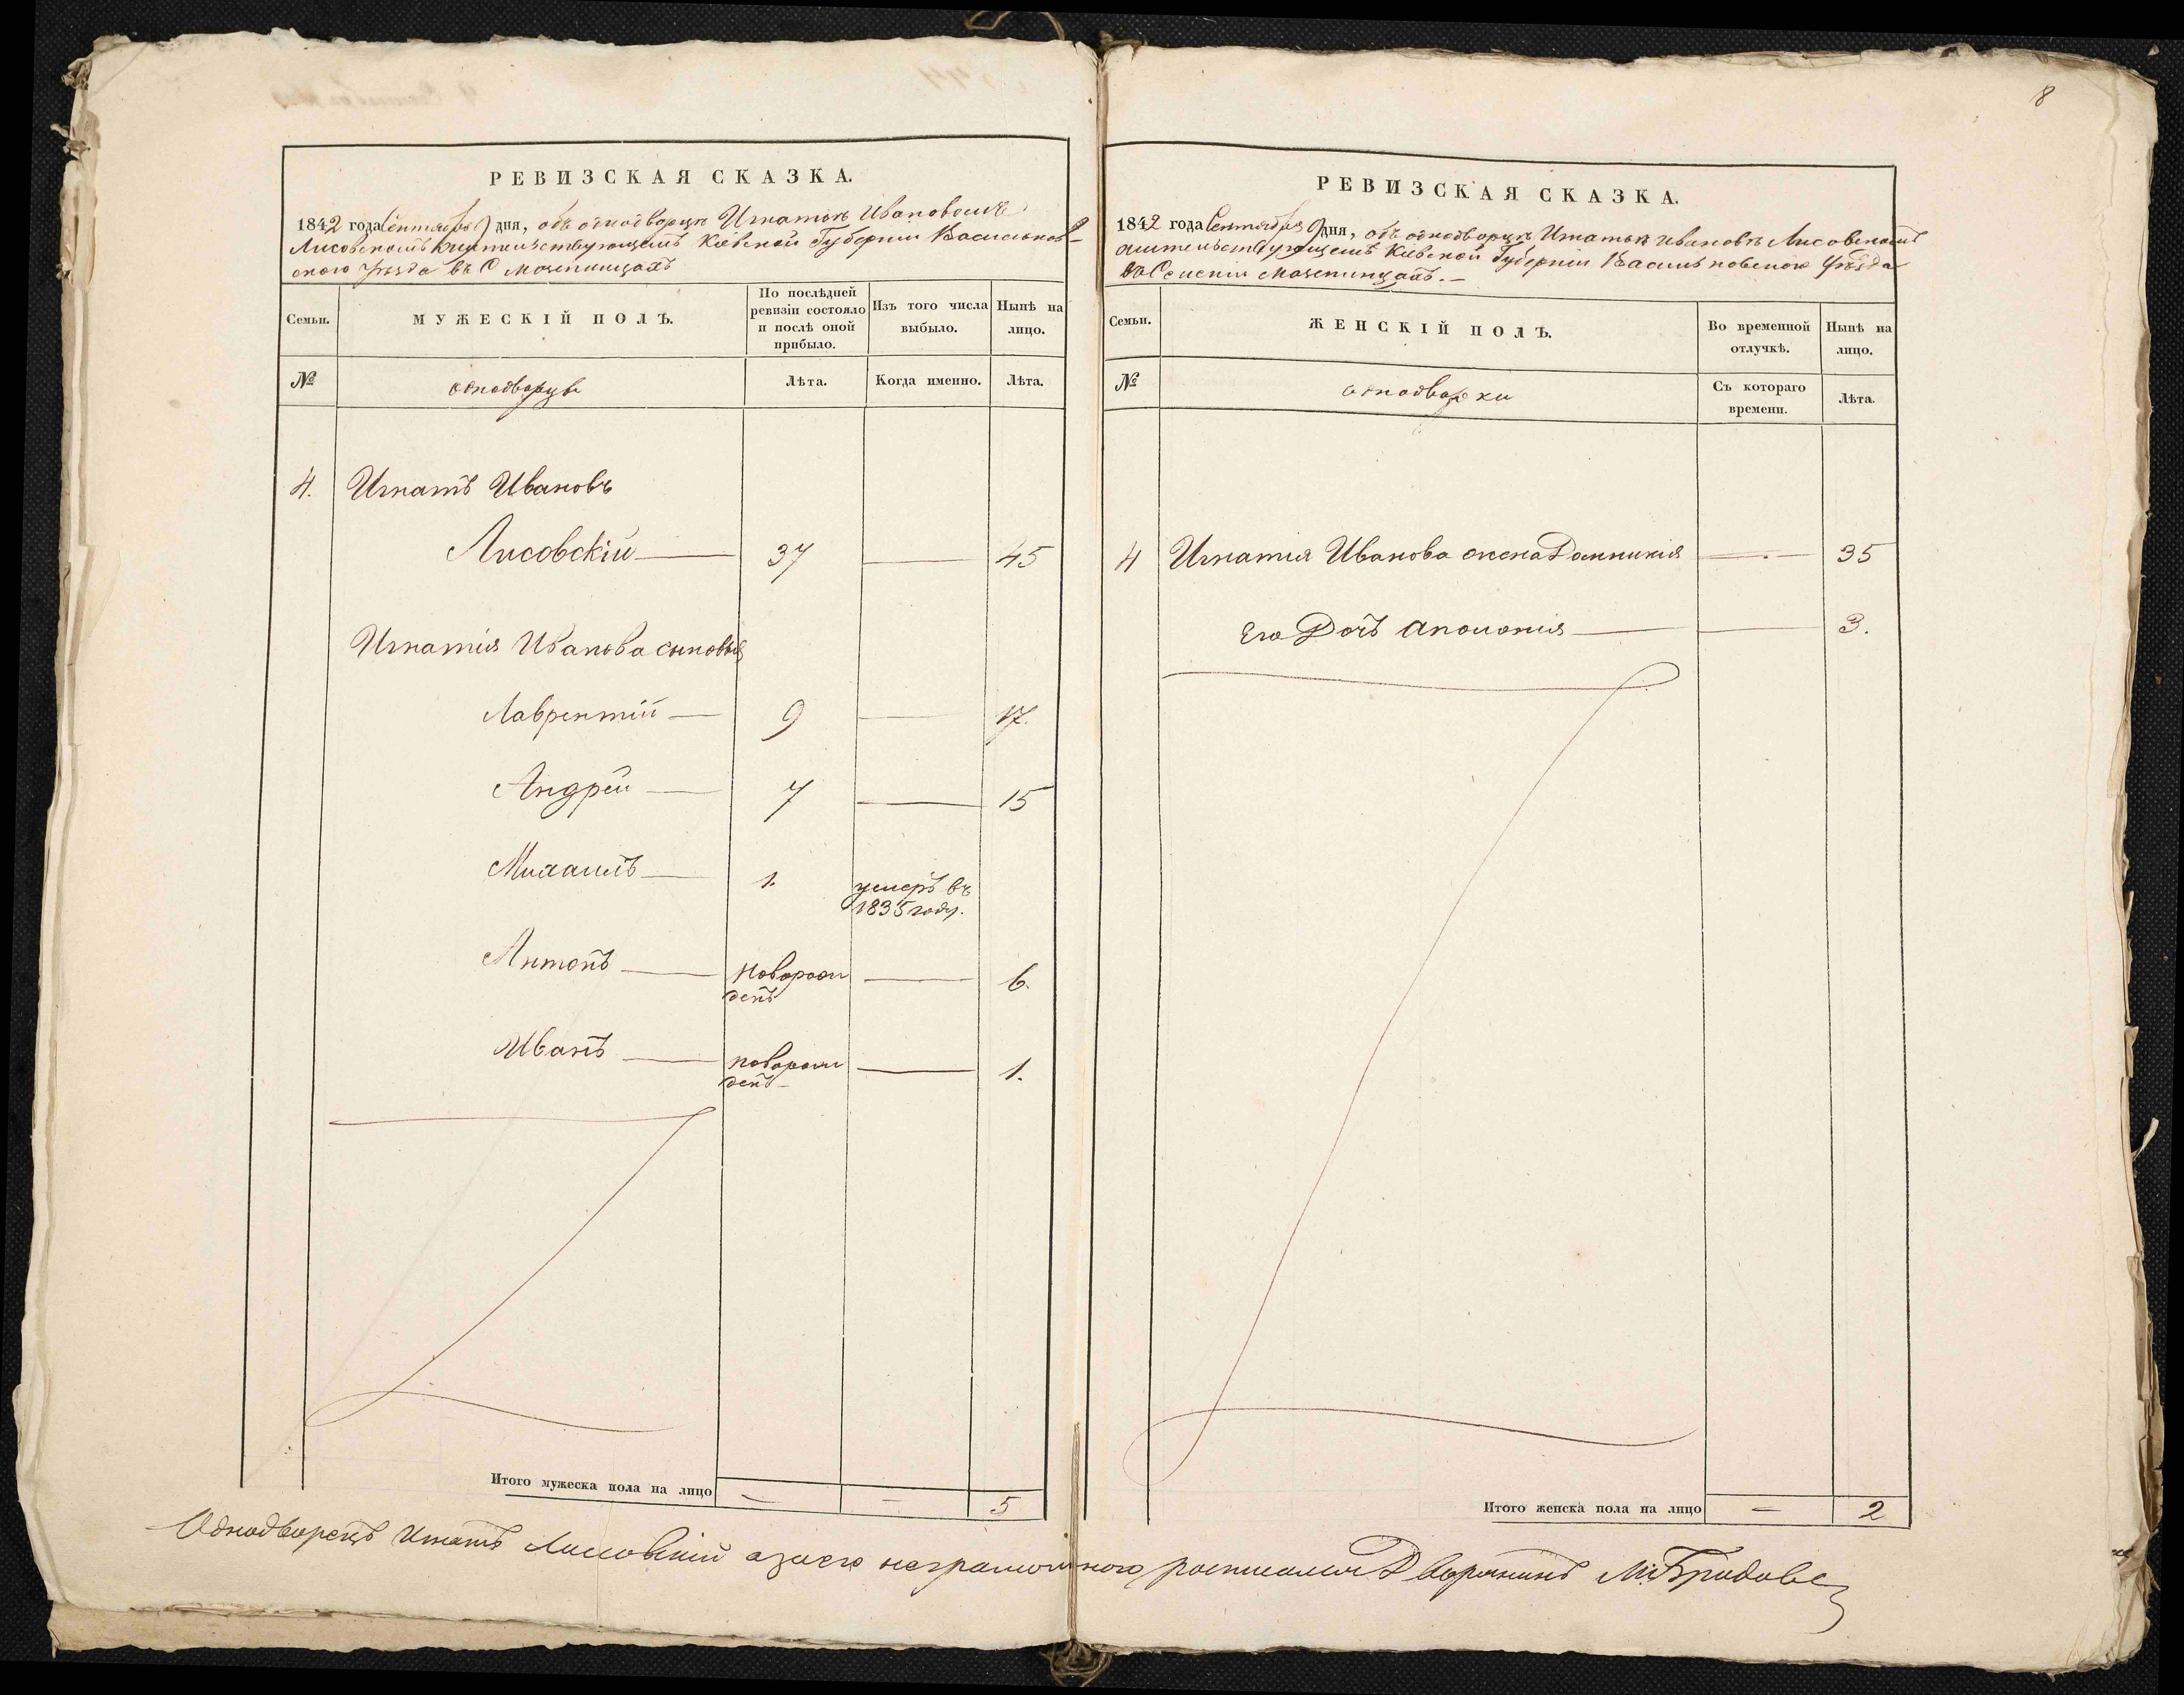 8
РЕВИЗСКАЯ СКАЗКА.
1842 года Сентября 9 дня, объ однодворцѣ Игнатьѣ Ивановомъ
Лисовскомъ жительствующемъ Кіевской Губерніи Васильков-
скаго уѣзда въ С Мазепинцахъ
Семьи.
МУЖЕСКІЙ ПОЛЪ.
По послѣдней ревизіи состояло и послѣ оной прибыло.
Изъ того числа выбыло.
Нынѣ на лицо.
№
однодворцы
Лѣта.
Когда именно.
Лѣта.
4. Игнатъ Ивановъ
Лисовскій — 37 — 45
Игнатія Иванова сыновья
Лаврентій — 9 — 17.
Андрей — 7 — 15
Михаилъ — 1. умеръ въ
1835 году.
Антонъ — новорож
денъ — 6.
Иванъ — новорож
денъ — 1.
Итого мужеска пола на лицо — — 5
РЕВИЗСКАЯ СКАЗКА.
1842 года Сентября 9 дня, объ однодворцѣ Игнатьѣ Ивановѣ Лисовскомъ
жительствующемъ Кіевской Губерніи Васильковского Уѣзда
въ Селеніи Мазепинцахъ. —
Семьи.
ЖЕНСКІЙ ПОЛЪ.
Во временной отлучкѣ.
Нынѣ на лицо.
№
однодворки
Съ котораго времени.
Лѣта.
4 Игнатія Иванова жена Домникія — 35
Его Дочь Аполонія — — 3.
Итого женска пола на лицо — 2
Однодворецъ Игнатъ Лисовскій а за его неграмотного росписался Дворянинъ М. Бродове